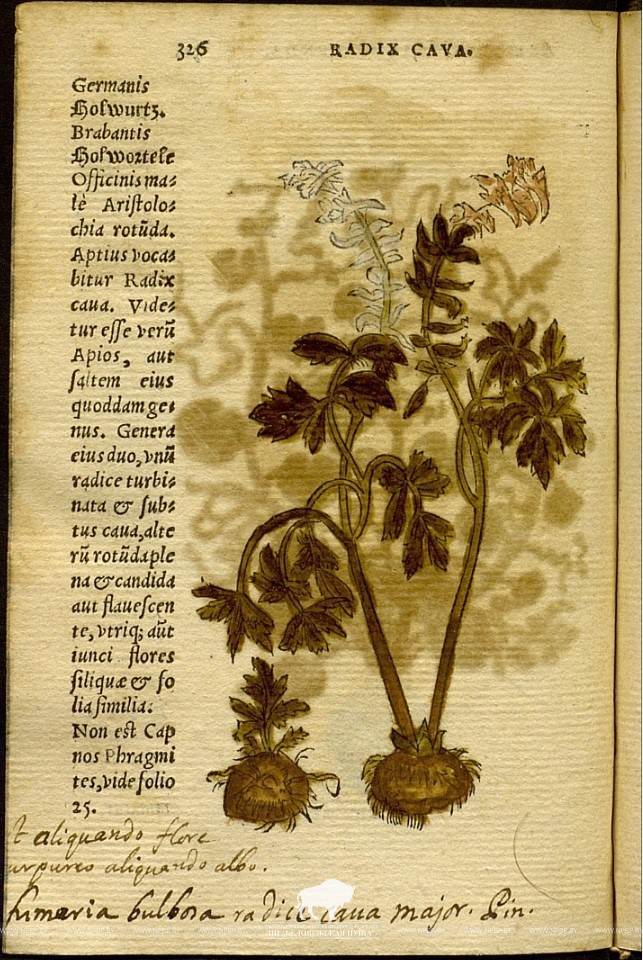 326
RADIX CAVA.
Germanis
Holwurtz.
Brabantis
Holwortele
Officinis ma⸗
lè Ariſtolo⸗
chia rotūda.
Aptius voca⸗
bitur Radix
caua. Vide⸗
tur eſſe verū
Apios, aut
ſaltem eius
quoddam ge⸗
nus. Genera
eius duo, vnū
radice turbi⸗
nata & ſub⸗
tus caua, alte
rū rotūda ple
na & candida
aut flaueſcen
te, vtriq; aūt
iunci flores
ſiliquæ & fo
lia ſimilia.
Non est Cap
nos Phragmi
tes, vide folio
25.
t aliquando flore
urpureo aliquando albo.
fumaria bulbosa radice caua major. Pin.